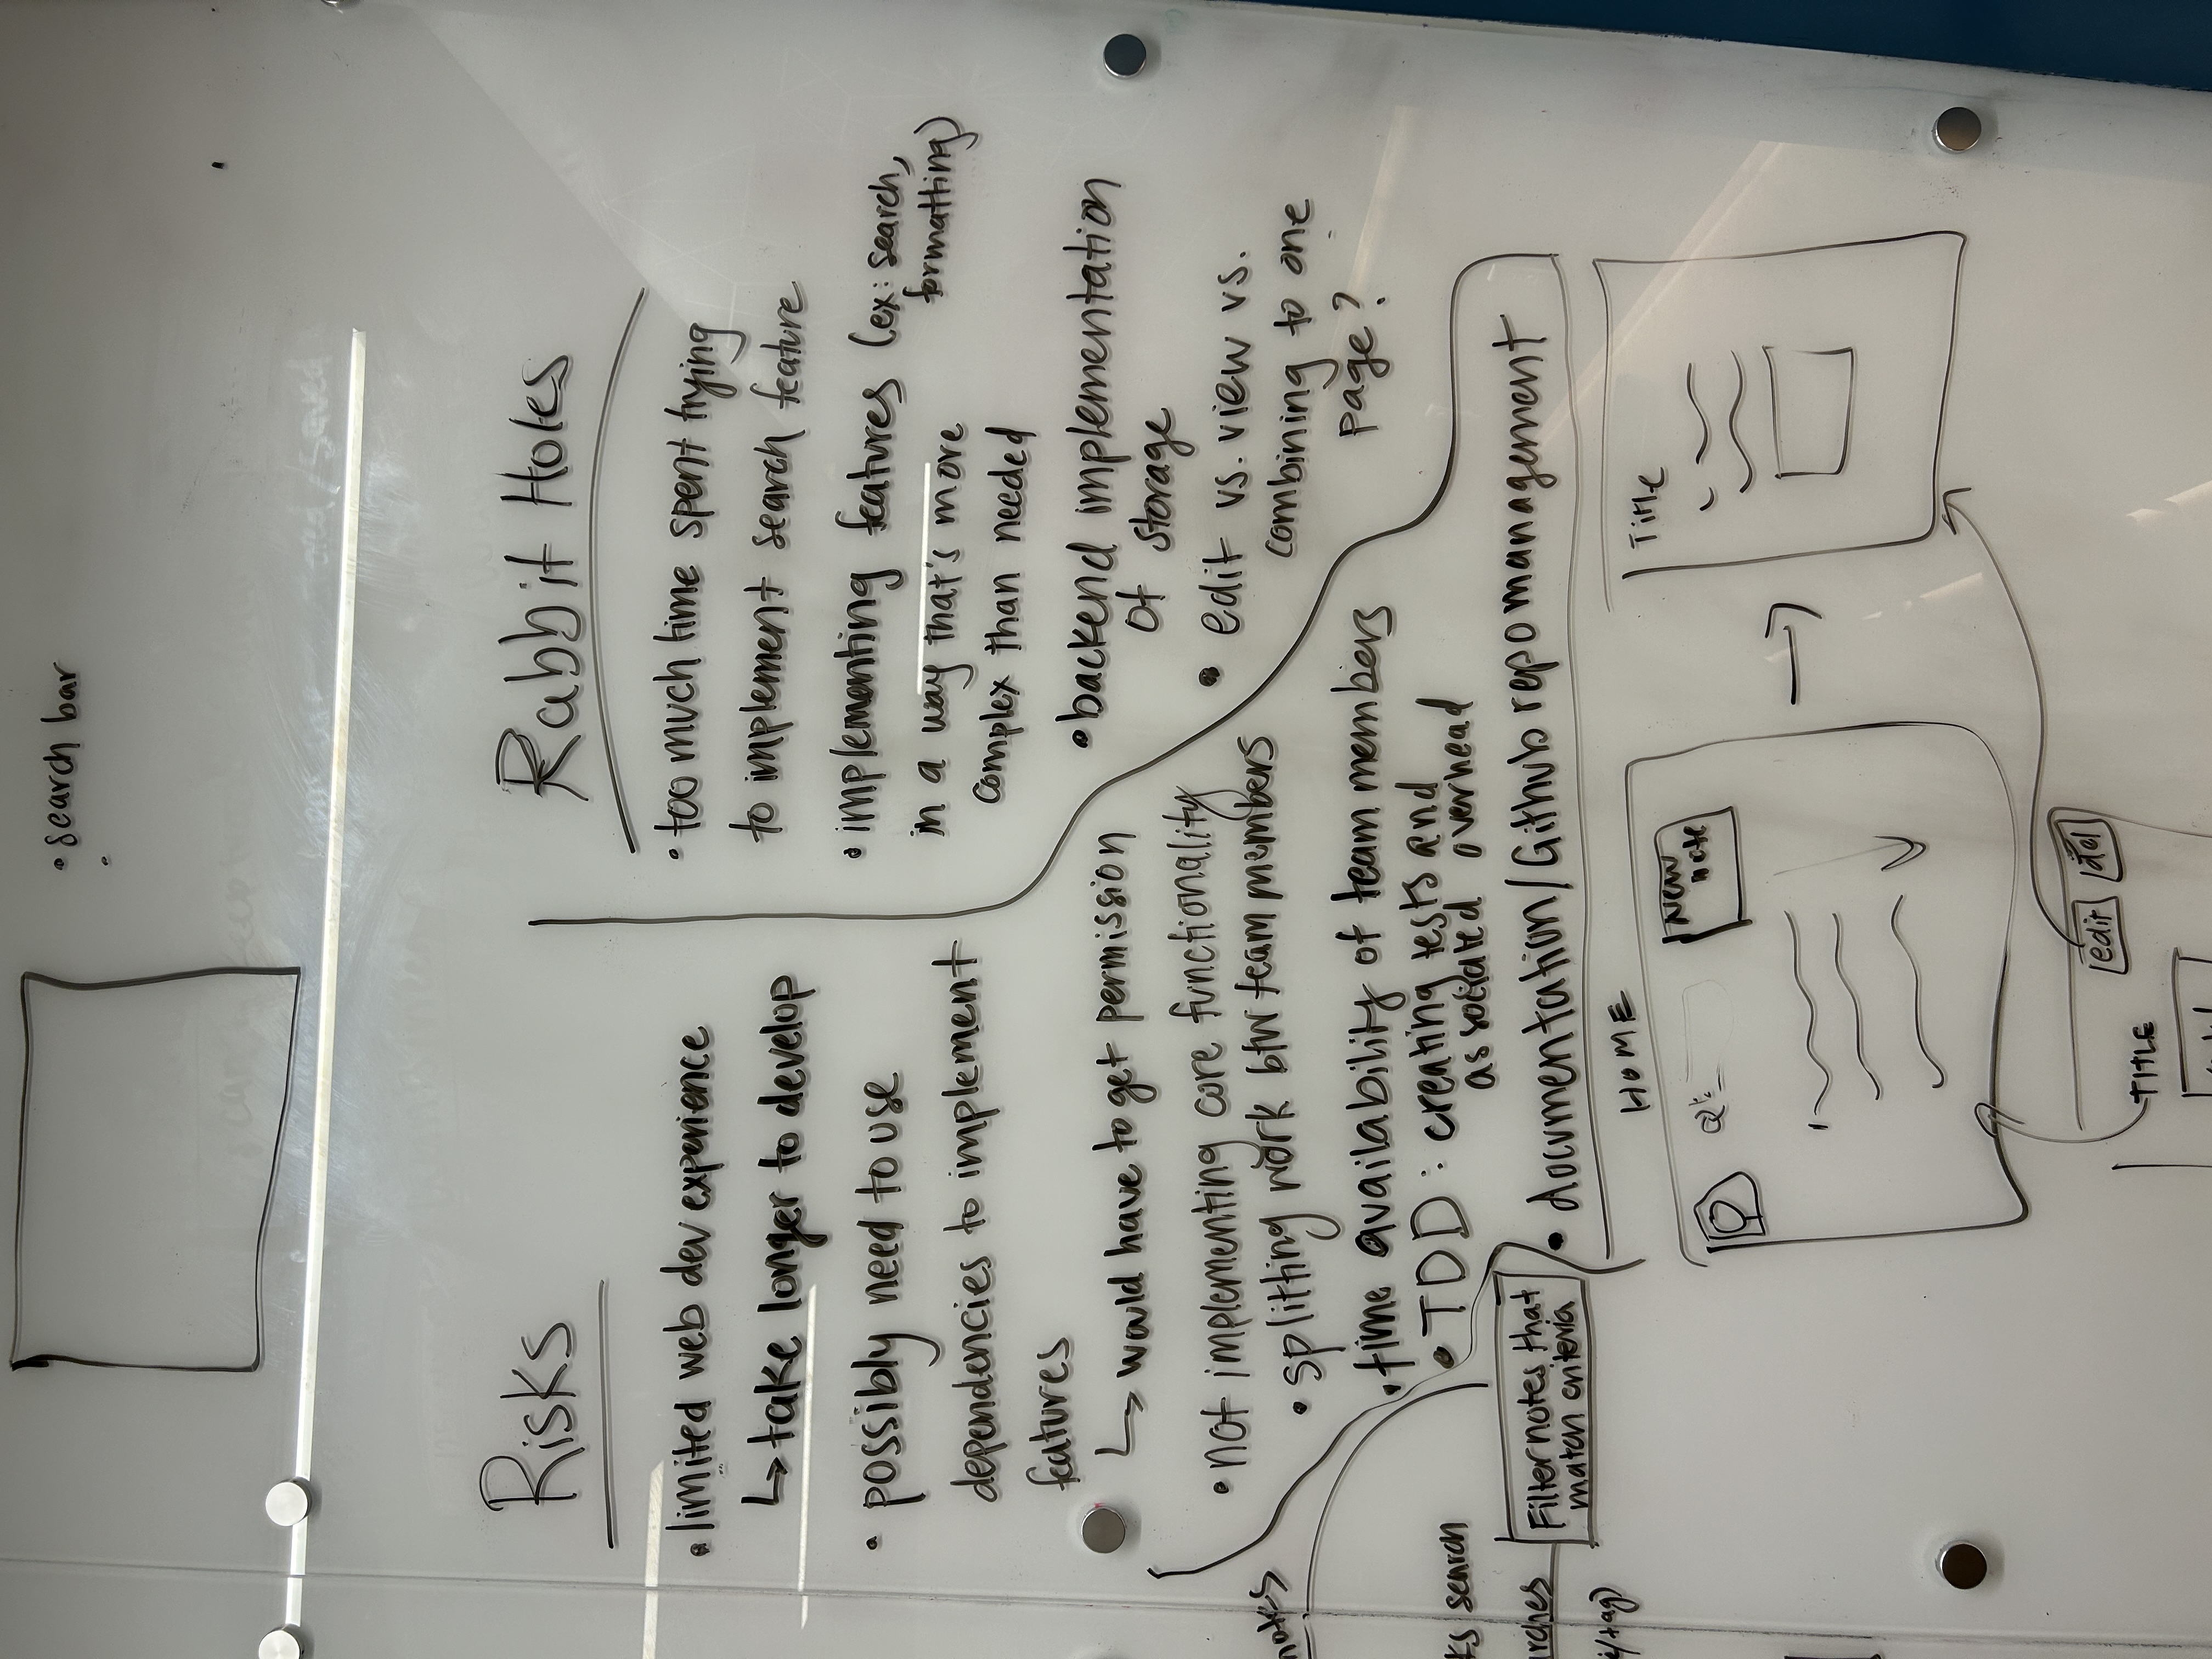 • search bar
•
Risks
• limited web dev experience
↳ take longer to develop
• possibly need to use
dependencies to implement
features
↳ would have to get permission
• not implementing core functionality
• splitting work btw team members
• time availability of team members
• TDD: creating tests and
associated overhead
• documentation/Github repo management
Rabbit Holes
• too much time spent trying
to implement search feature
• implementing features (ex: search,
formatting)
in a way that's more
complex than needed
• backend implementation
of storage
• edit vs. view vs.
combining to one
page?
notes
search
Filter notes that
match criteria
/tag)
HOME
New
note
Title
edit
del
TITLE